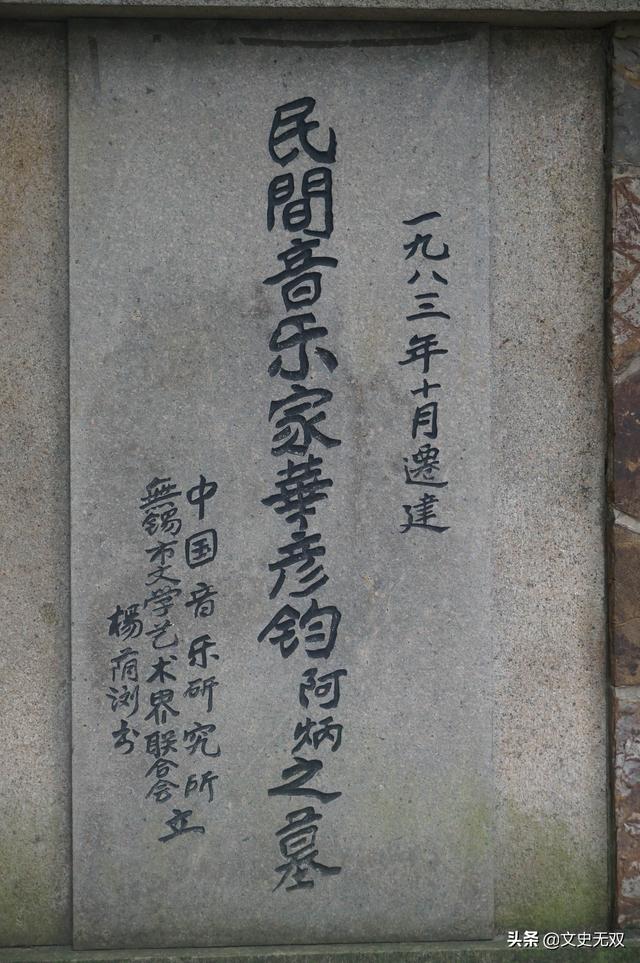 一九八三年十月遷建
民間音乐家華彦钧阿炳之墓
中国音乐研究所
無锡市文学艺术界联合会立
楊荫浏书
头条 @文史无双